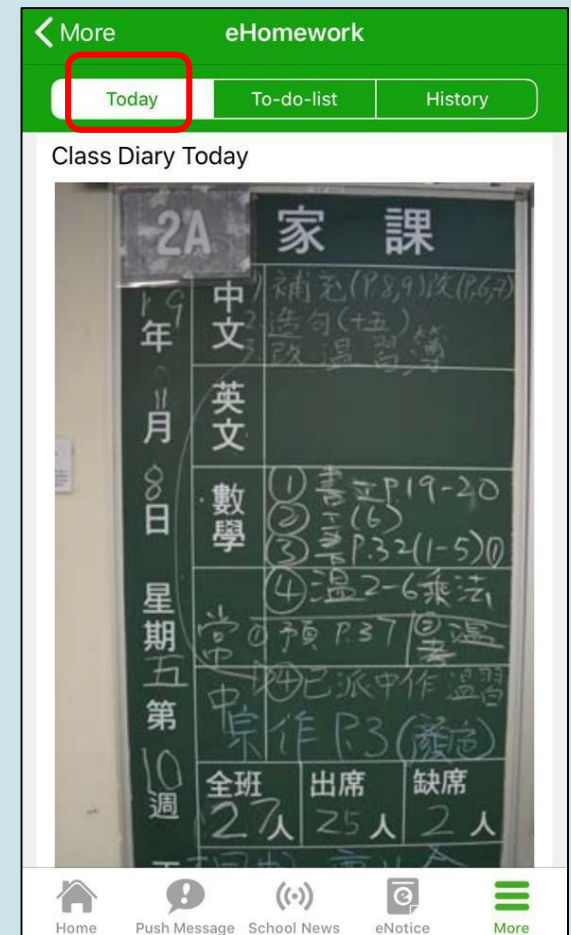 More eHomework
Today To-do-list History
Class Diary Today
2A 家課
19年11月8日 星期五 第10週
中文
補充(P.8,9)
造句(十五)
3.改溫習簿
英文
數學
① 書 P.19-20
② (6)
③ P.32(1-5)
④ 溫2-6乘法
常 ① 預 P.37 ② 溫
中 ④ 已派中作 溫習
作 P.3
全班 出席 缺席
27人 25人 2人
Home Push Message School News eNotice More